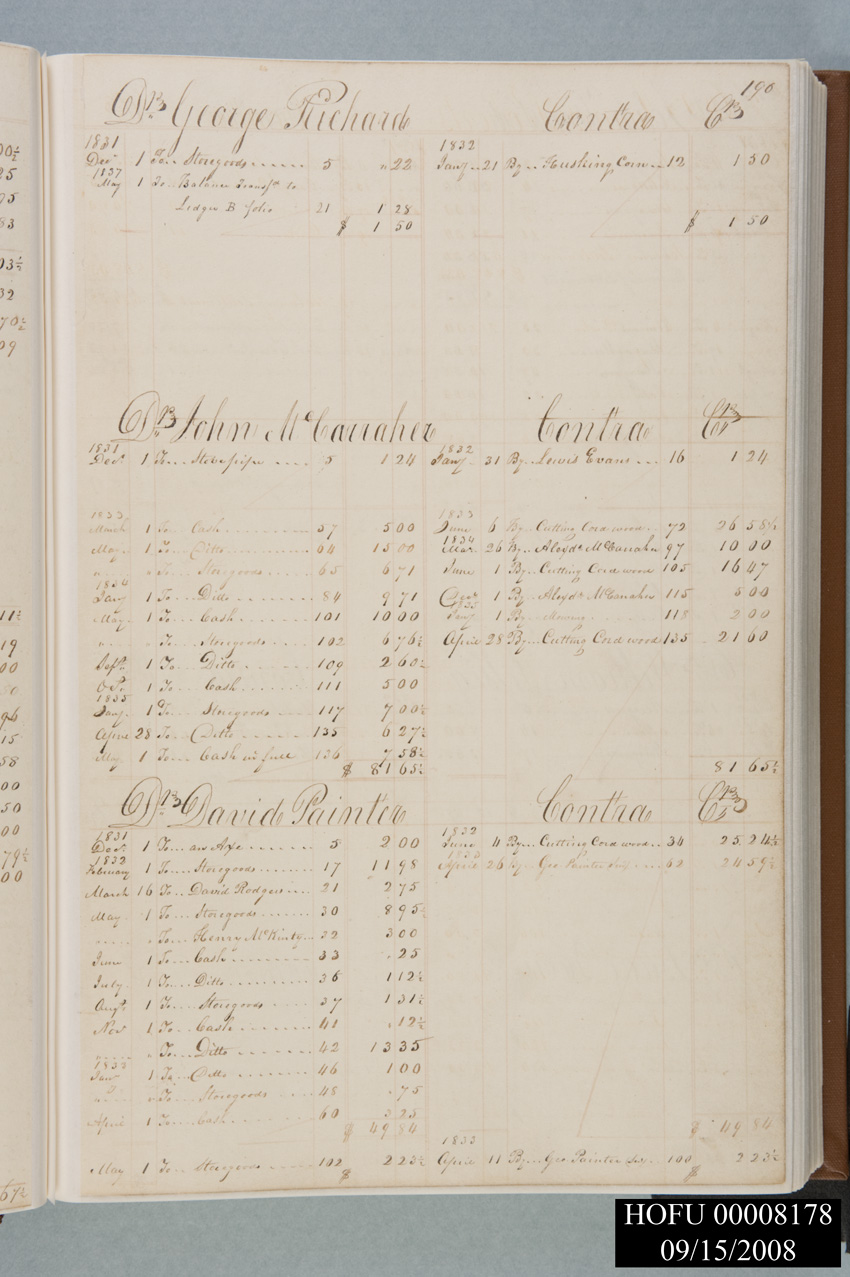 190
Dr. George Richard Contra Cr.
1831 1832
Decr 1 To Storegoods 5 " 22 Jany 21 By Husking Corn 12 1 50
1837
May 1 To Balance Transfd to
Ledger B folio 21 1 28
$ 1 50 $ 1 50
Dr. John McCanaher Contra Cr.
1831 1832
Decr 1 To Stovepipe 5 1 24 Jany 31 By Lewis Evans 16 1 24
1833 1833
March 1 To Cash 57 5 00 June 6 By Cutting Cord wood 72 26 58½
1834
May 1 To Ditto 64 15 00 Mar 26 By Alexdr McCanaher 97 10 00
" " To Storegoods 65 6 71 June 1 By Cutting Cord wood 105 16 47
1834
Jany 1 To Ditto 84 9 71 Decr 1 By Alexdr McCanaher 115 5 00
1835
May 1 To Cash 101 10 00 Jany 1 By 118 2 00
" " To Storegoods 102 6 76½ April 28 By Cutting Cord wood 135 21 60
Sept 1 To Ditto 109 2 60½
Oct 1 To Cash 111 5 00
1835
Jany 1 To Storegoods 117 7 00½
April 28 To Ditto 135 6 27½
May 1 To Cash in full 136 7 58½
$ 81 65½ 81 65½
Dr. David Painter Contra Cr.
1831 1832
Decr 1 To an Axe 5 2 00 June 4 By Cutting Cord wood 34 25 24½
1832 1833
February 1 To Storegoods 17 11 98 April 26 By Geo Painter 62 24 59½
March 16 To David Rodgers 21 2 75
May 1 To Storegoods 30 8 95½
" " To Henry McKinty 32 3 00
June 1 To Cash 33 " 25
July 1 To Ditto 36 1 12½
Augt 1 To Storegoods 37 1 31½
Nov 1 To Cash 41 " 12½
" " To Ditto 42 13 35
1833
Jany 1 To Ditto 46 1 00
" " To Storegoods 48 " 75
April 1 To Cash 60 3 25
$ 49 84 $ 49 84
1833
May 1 To Storegoods 102 2 23½ April 11 By Geo Painter 100 2 23½
$ $
HOFU 00008178
09/15/2008